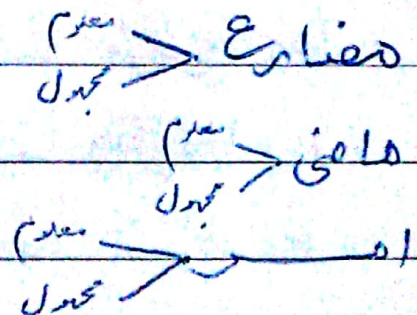 مضارع < معلوم
مجهول
ماضی < معلوم
مجهول
امر < معلوم
مجهول